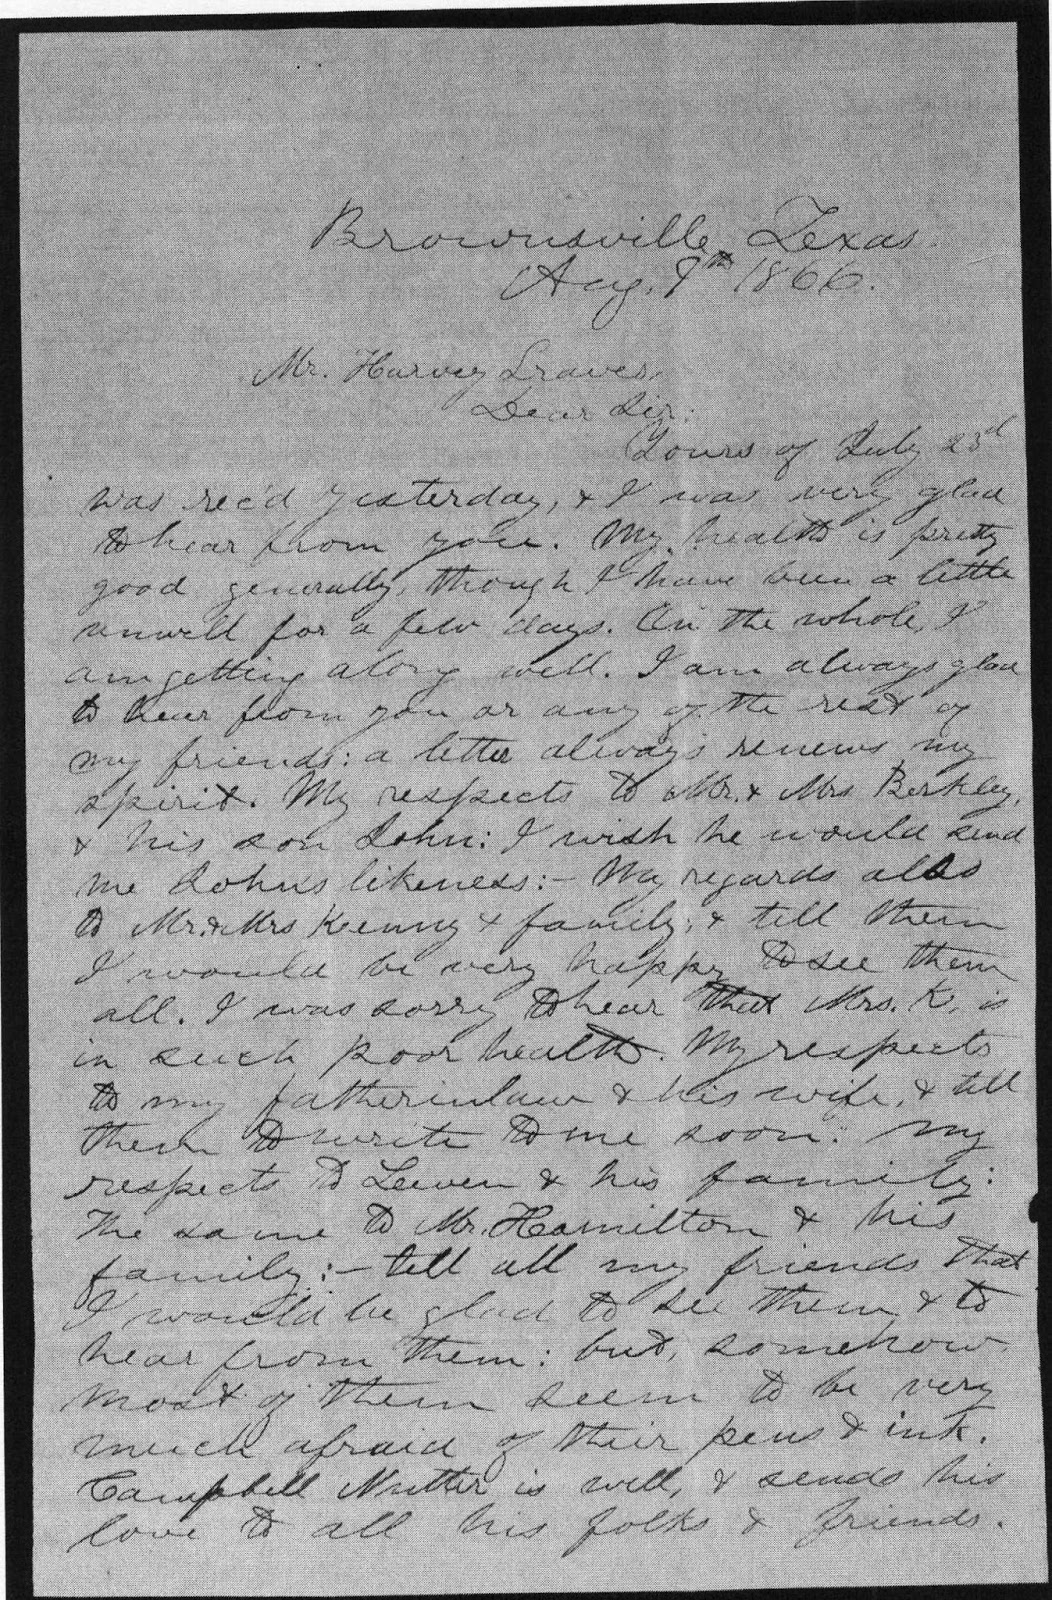 Brownsville, Texas
Aug. 9th 1866.
Mr. Harvey Graves.
Dear Sir:
Yours of July 23d
was rec'd yesterday, & I was very glad
to hear from you. My health is pretty
good generally, though I have been a little
unwell for a few days. On the whole, I
am getting along well. I am always glad
to hear from you or any of the rest of
my friends: a letter always renews my
spirit. My respects to Mr. & Mrs Berkley,
& his son John: I wish he would send
me John's likeness:- My regards also
to Mr. & Mrs Kenny & family; & tell them
I would be very happy to see them
all. I was sorry to hear that Mrs. K. is
in such poor health. My respects
to my fatherinlaw & his wife, & tell
them to write to me soon: My
respects to & his family:
The same to Mr. Hamilton & his
family:- tell all my friends that
I would be glad to see them & to
hear from them: but, somehow
most of them seem to be very
much afraid of their pens & ink.
Campbell Nutter is well, & sends his
love to all his folks & friends.